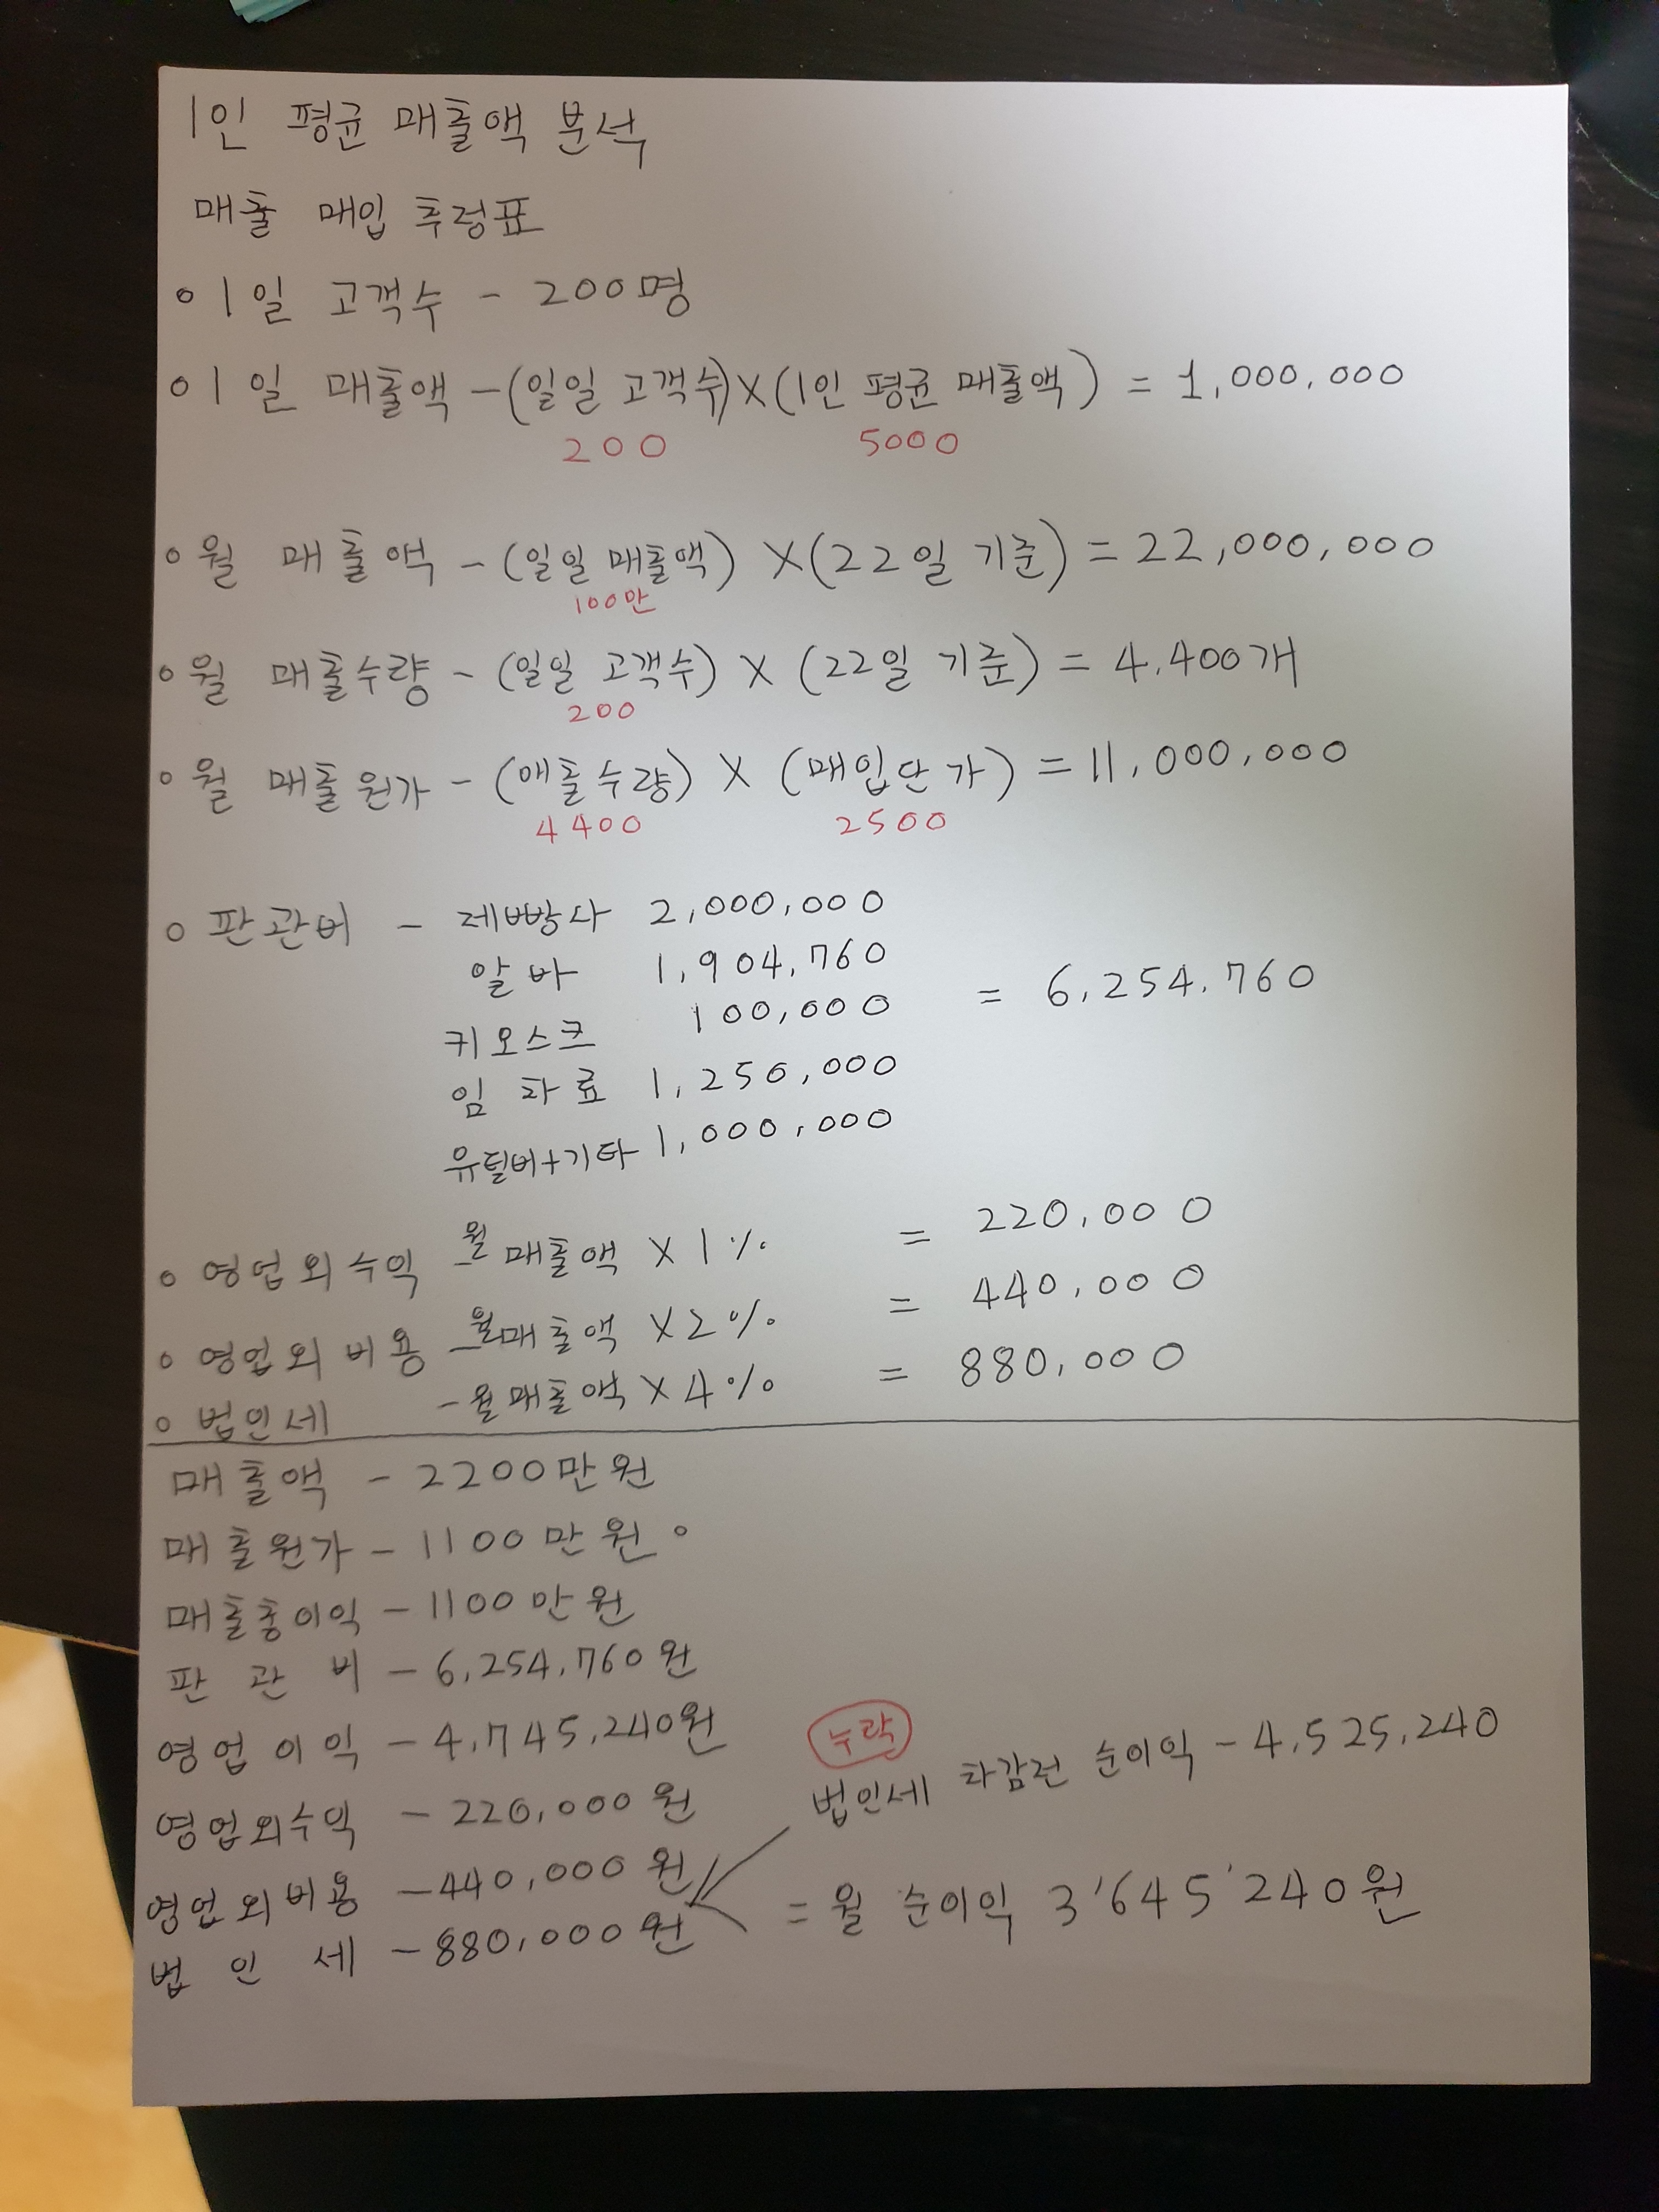 1인 평균 매출액 분석
매출 매입 추정표
○ 1일 고객수 - 200명
○ 1일 매출액 - (일일 고객수) X (1인 평균 매출액) = 1,000,000
200 5000
○ 월 매출액 - (일일 매출액) X (22일 기준) = 22,000,000
100만
○ 월 매출수량 - (일일 고객수) X (22일 기준) = 4,400개
200
○ 월 매출원가 - (매출수량) X (매입단가) = 11,000,000
4400 2500
○ 판관비 - 제빵사 2,000,000
알바 1,904,760
키오스크 100,000 = 6,254,760
임차료 1,250,000
유틸비+기타 1,000,000
○ 영업외수익 - 월 매출액 X 1% = 220,000
○ 영업외 비용 - 월매출액 X 2% = 440,000
○ 법인세 - 월매출액 X 4% = 880,000
매출액 - 2200만원
매출원가 - 1100만원 ○
매출총이익 - 1100만원
판관비 - 6,254,760원
영업이익 - 4,745,240원
누락
법인세 차감전 순이익 - 4,525,240
영업외수익 - 220,000원
영업외비용 - 440,000원
법인세 - 880,000원 = 월 순이익 3'645'240원